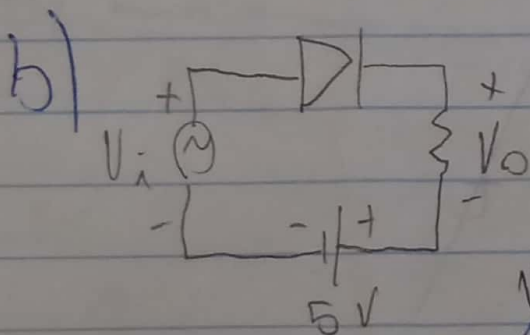 b)
+ +
Vi ~ Vo
- - + -
5 V